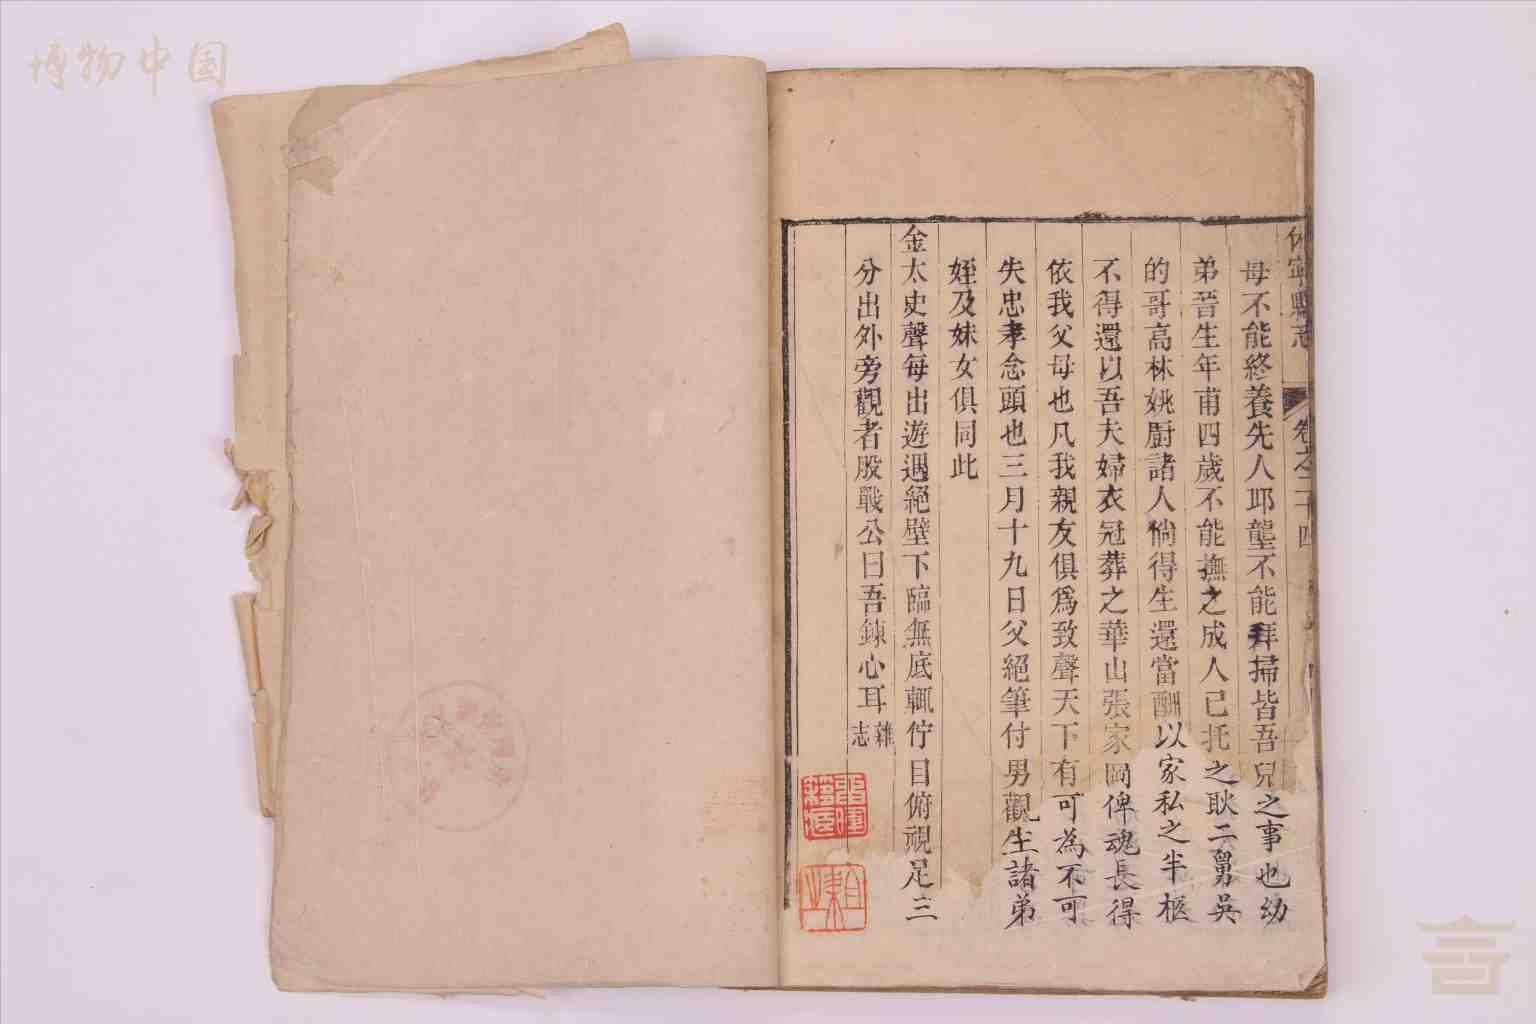 博物中国
休寧縣志
卷之二十四
母不能終養先人耶壟不能拜掃皆吾兒之事也幼
弟晉生年甫四歲不能撫之成人已托之耿二舅吳
的哥高林姚厨諸人倘得生還當酬以家私之半柩
不得還以吾夫婦衣冠葬之華山張家岡俾魂長得
依我父母也凡我親友俱爲致聲天下有可為不可
失忠孝念頭也三月十九日父絕筆付男觀生諸弟
姪及妹女俱同此
金太史聲每出遊遇絕壁下臨無底輒佇目俯視足三
分出外旁觀者股戰公曰吾鍊心耳雜志